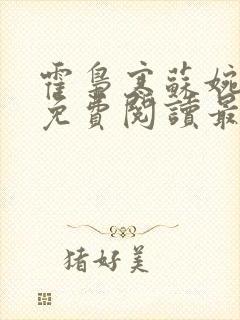 霍梟寒蘇婉
免費閱讀最
豬好美